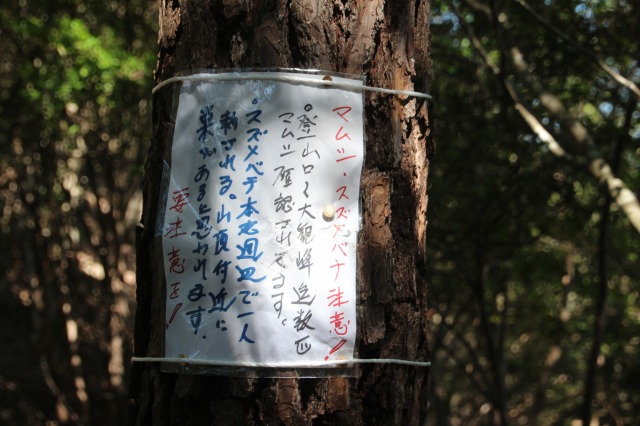 マムシ・スズメバチ注意!!
。登山口〜大観峰迄数匹
マムシ確認されてます。
・スズメバチ本志周辺で一人
刺される。山頂付近に
巣があると思われます。
要注意を!!